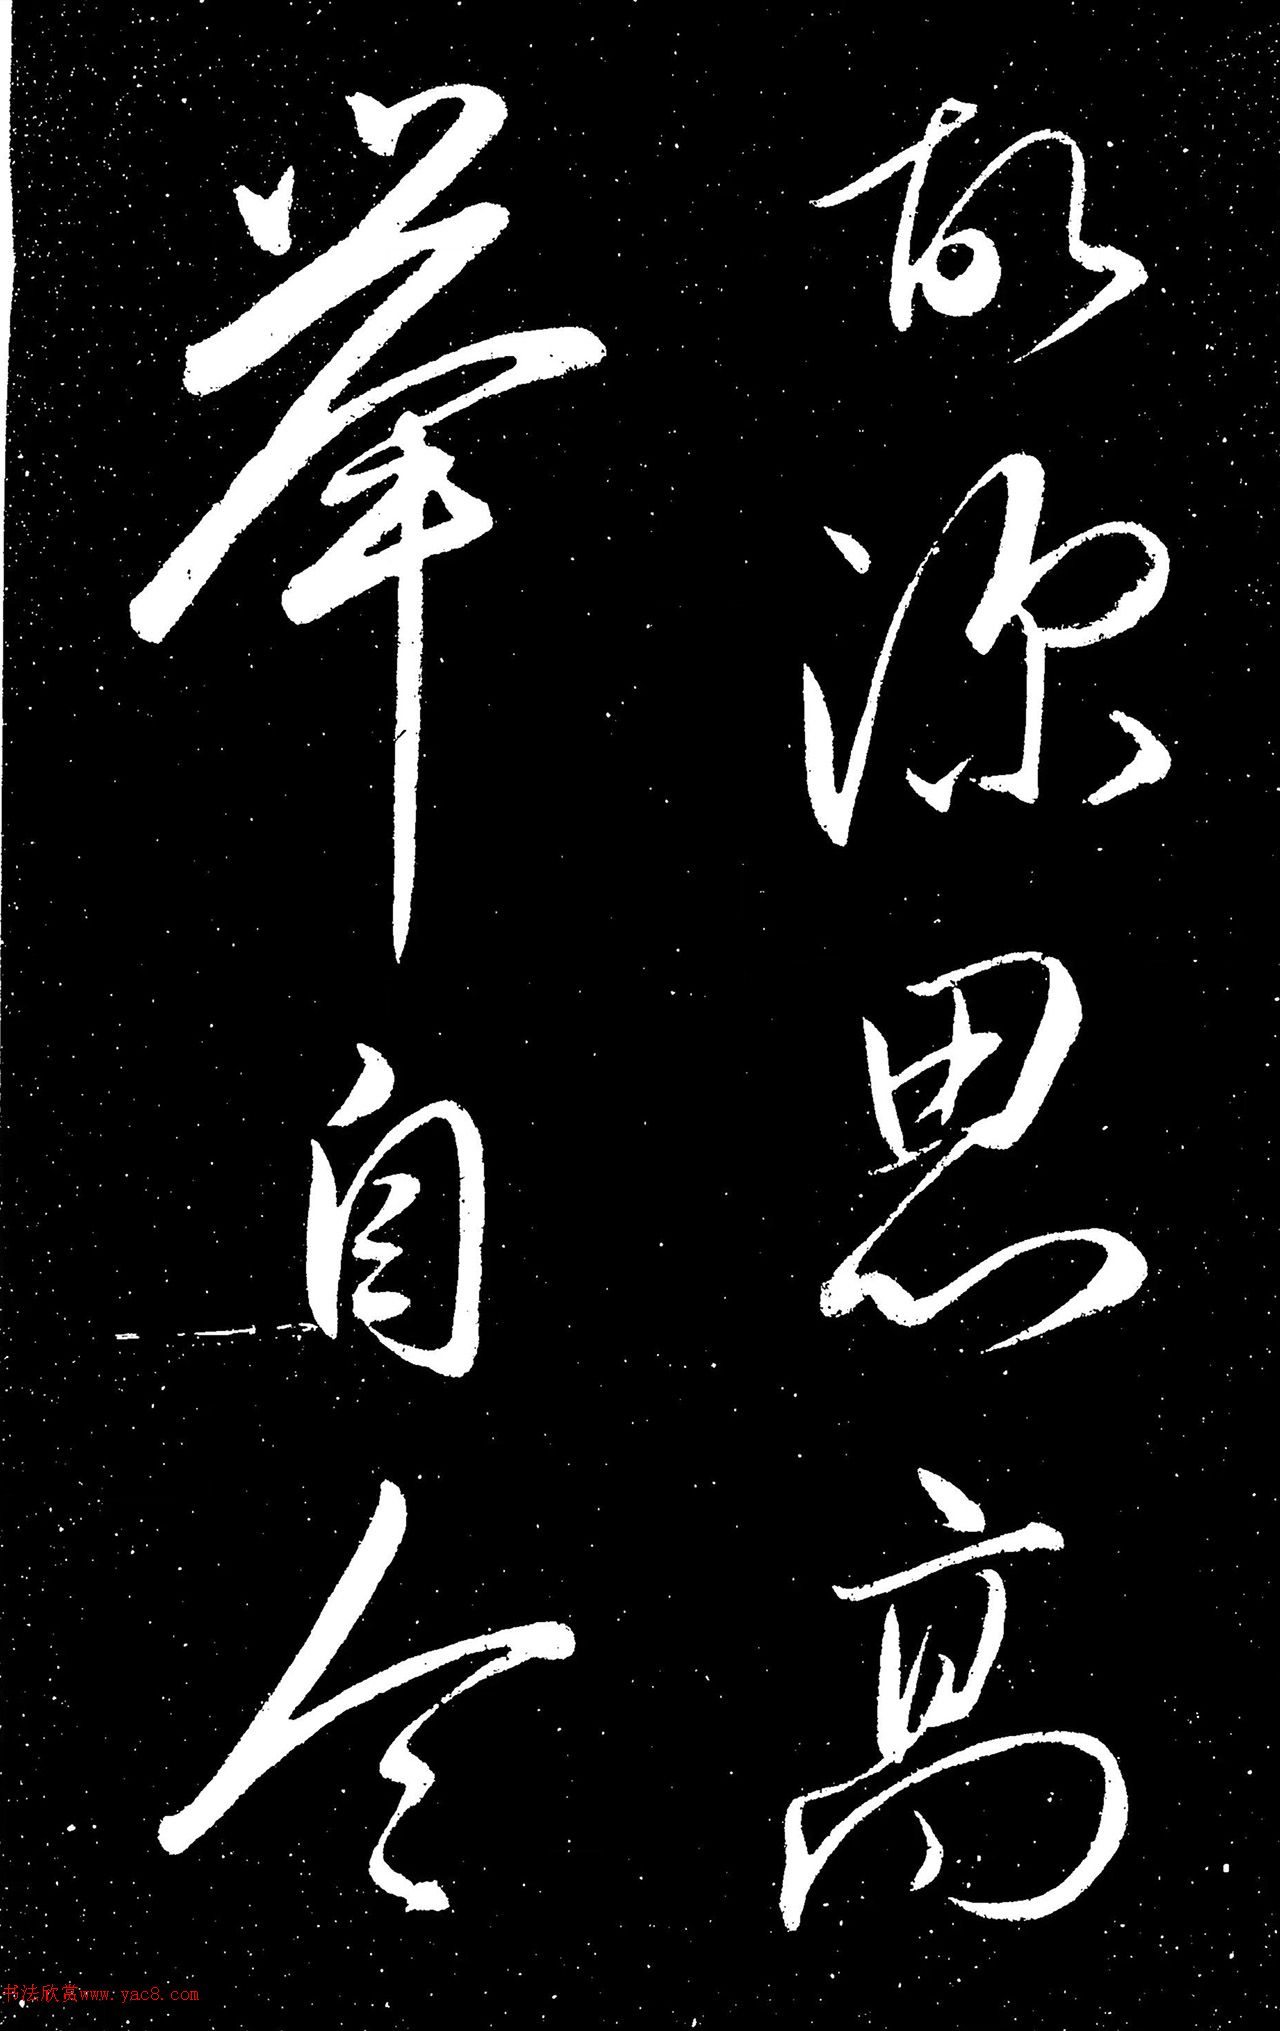 故深思高
舉自令
书法欣赏www.yac8.com